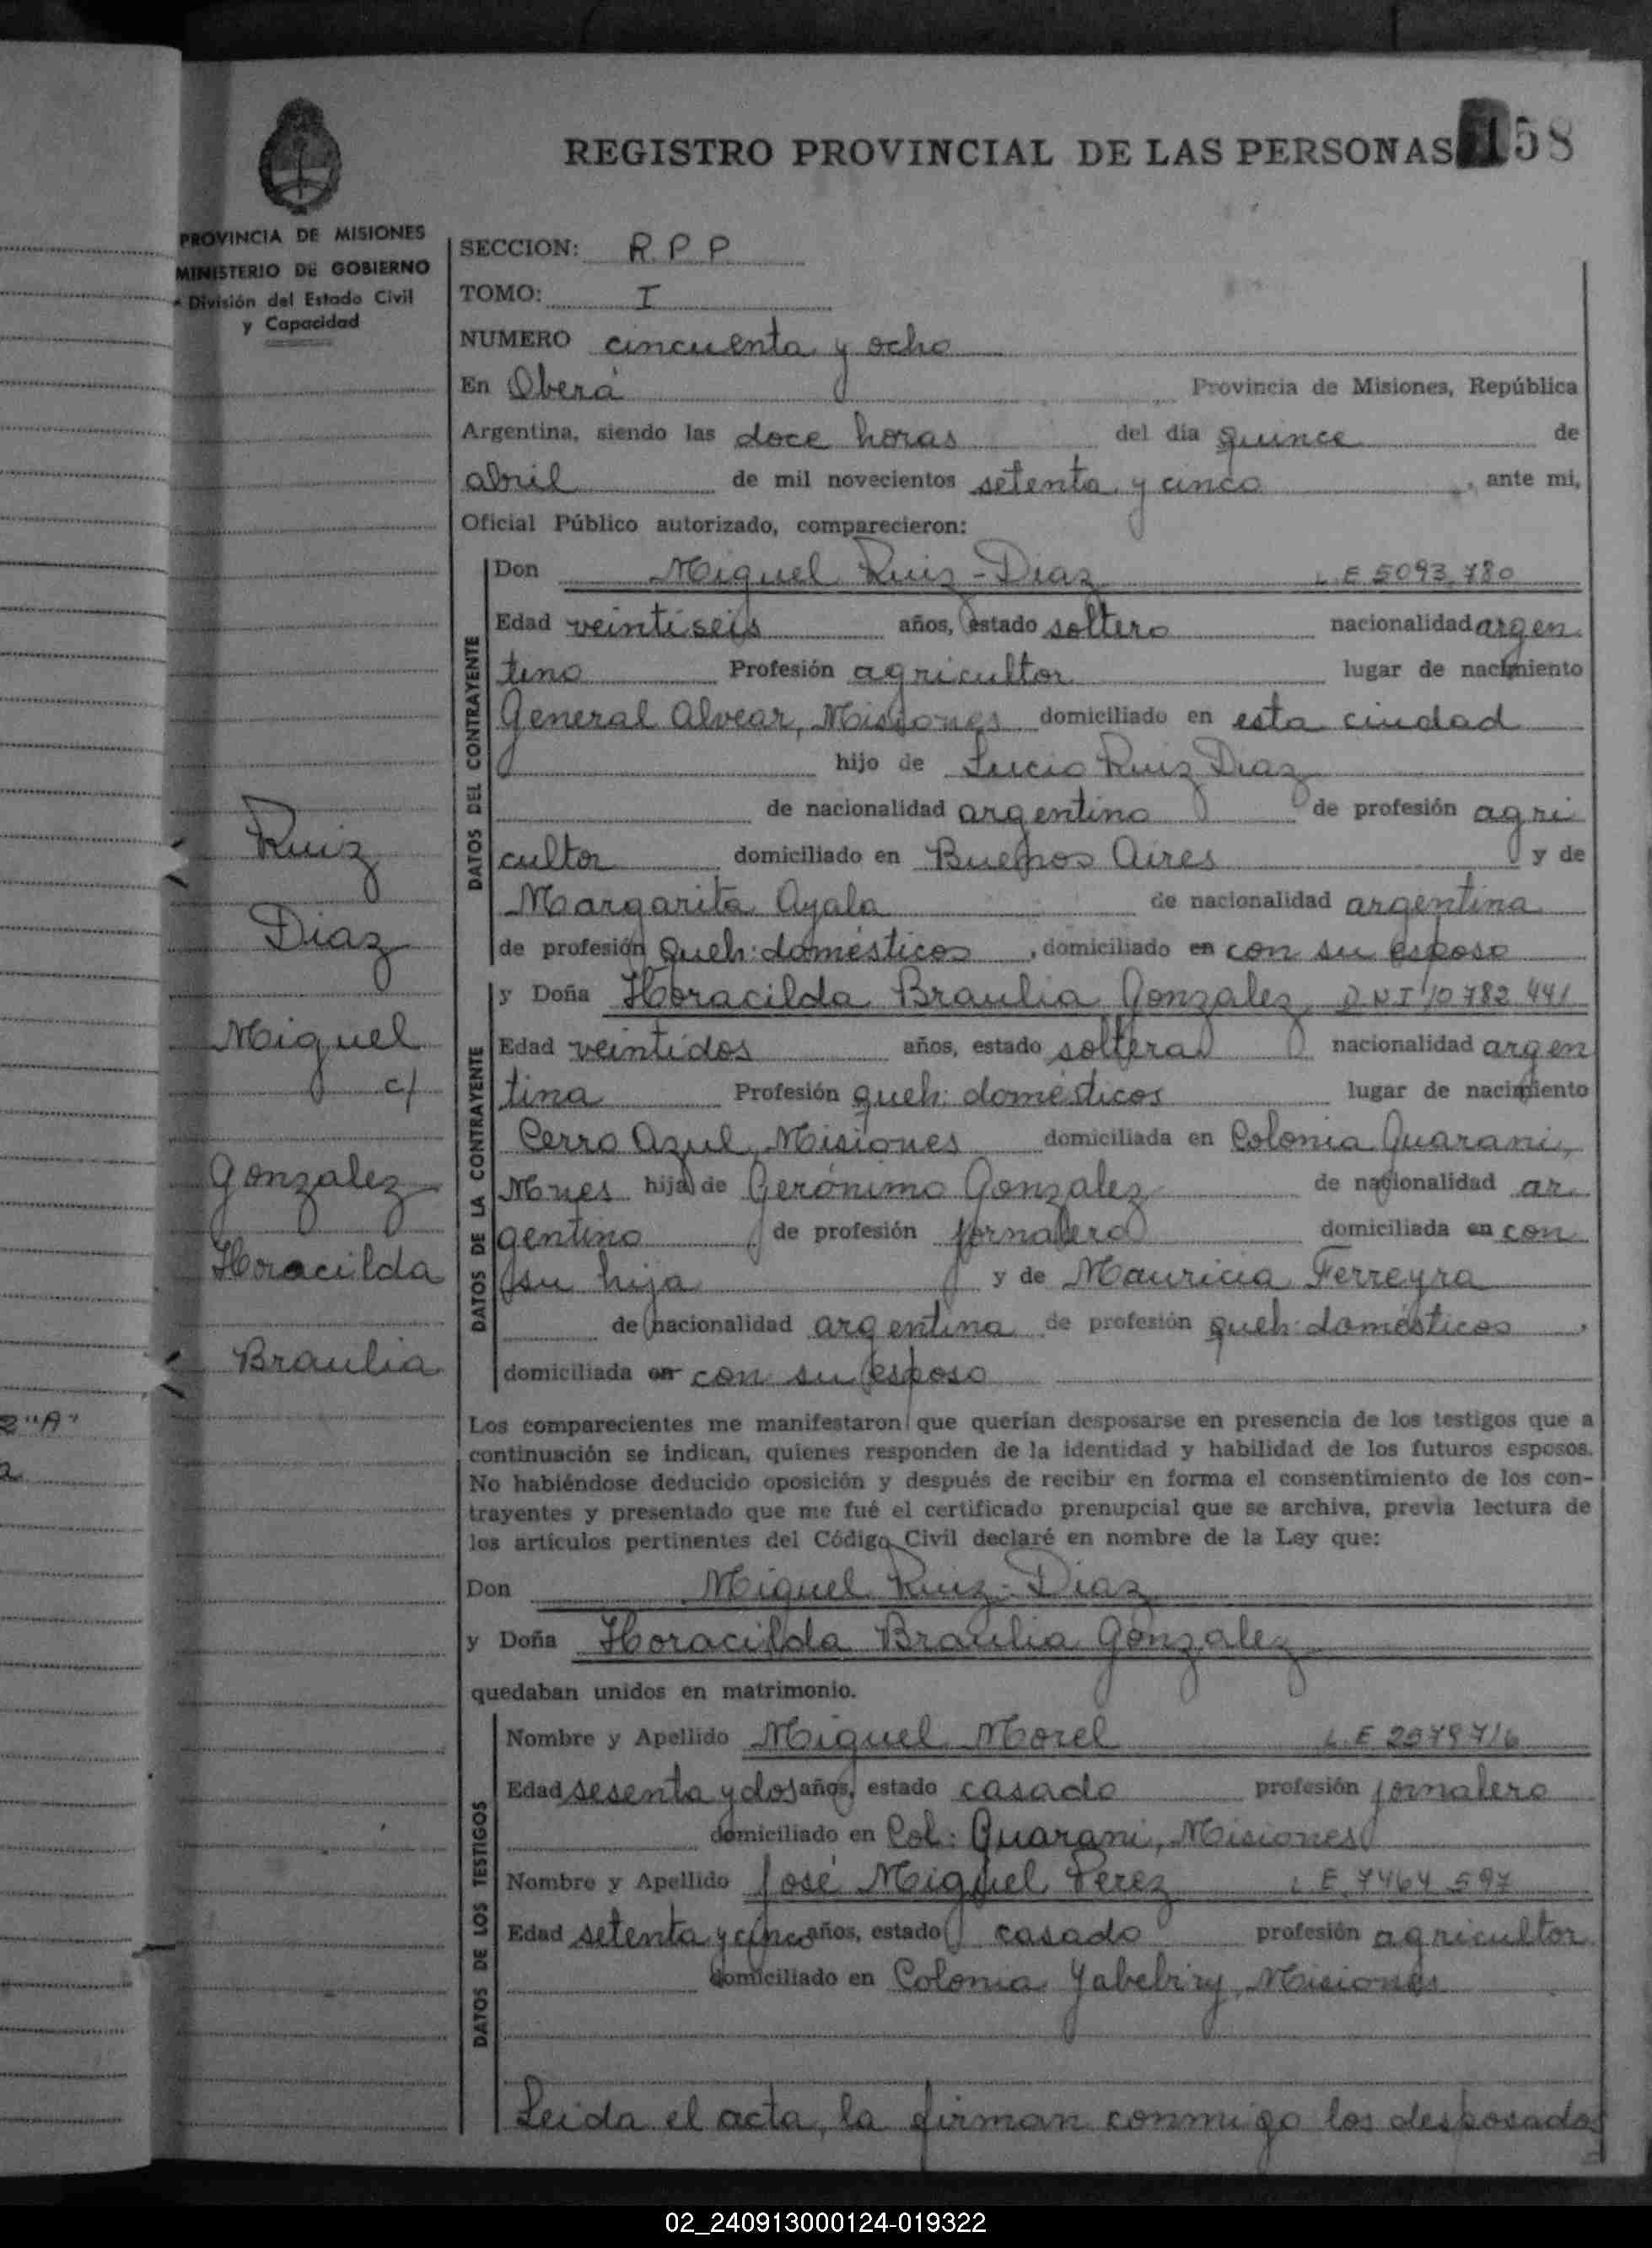 REGISTRO PROVINCIAL DE LAS PERSONAS 158
PROVINCIA DE MISIONES
MINISTERIO DE GOBIERNO
División del Estado Civil
y Capacidad
SECCION: R.P.P
TOMO: I
NUMERO cincuenta y ocho
En Oberá Provincia de Misiones, República
Argentina, siendo las doce horas del día quince de
abril de mil novecientos setenta y cinco, ante mi,
Oficial Público autorizado, comparecieron:
DATOS DEL CONTRAYENTE
Don Miguel Ruiz-Diaz L.E 5093.780
Edad veintiseis años, estado soltero nacionalidad argen
tino Profesión agricultor lugar de nacimiento
General Alvear, Misiones domiciliado en esta ciudad
hijo de Lucio Ruiz Diaz
de nacionalidad argentino de profesión agri
cultor domiciliado en Buenos Aires y de
Margarita Ayala de nacionalidad argentina
de profesión queh: domésticos, domiciliado en con su esposo
DATOS DE LA CONTRAYENTE
y Doña Horacilda Braulia Gonzalez D N I 10 782 441
Edad veintidos años, estado soltera nacionalidad argen
tina Profesión queh: domésticos lugar de nacimiento
Cerro Azul, Misiones domiciliada en Colonia Guarani,
Mnes hija de Gerónimo Gonzalez de nacionalidad ar
gentino de profesión jornalero domiciliada en con
su hija y de Mauricia Ferreyra
de nacionalidad argentina de profesión queh: domésticos,
domiciliada en con su esposo
Ruiz
Diaz
Miguel
c/
Gonzalez
Horacilda
Braulia
2 "A"
Los comparecientes me manifestaron que querían desposarse en presencia de los testigos que a
continuación se indican, quienes responden de la identidad y habilidad de los futuros esposos.
No habiéndose deducido oposición y después de recibir en forma el consentimiento de los con-
trayentes y presentado que me fué el certificado prenupcial que se archiva, previa lectura de
los artículos pertinentes del Código Civil declaré en nombre de la Ley que:
Don Miguel Ruiz-Diaz
y Doña Horacilda Braulia Gonzalez
quedaban unidos en matrimonio.
DATOS DE LOS TESTIGOS
Nombre y Apellido Miguel Morel L.E
Edad sesenta y dos años, estado casado profesión jornalero
domiciliado en Col: Guarani, Misiones
Nombre y Apellido José Miguel Perez L.E. 7464 597
Edad setenta y cinco años, estado casado profesión agricultor
domiciliado en Colonia Yabebiry, Misiones
Leida el acta, la firman conmigo los desposados
02_240913000124-019322